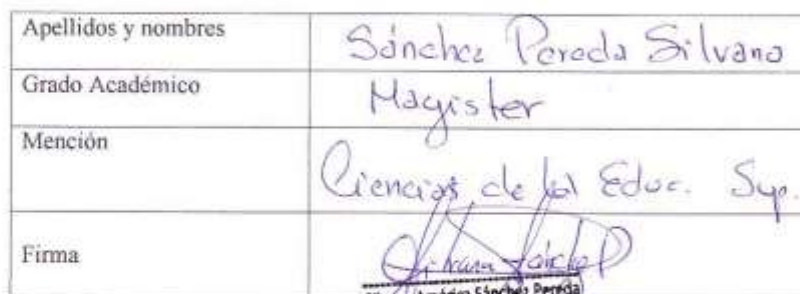 Apellidos y nombres Sánchez Pereda Silvana
Grado Académico Magister
Mención
Ciencias de la Educ. Sup.
Firma
Sánchez Pereda